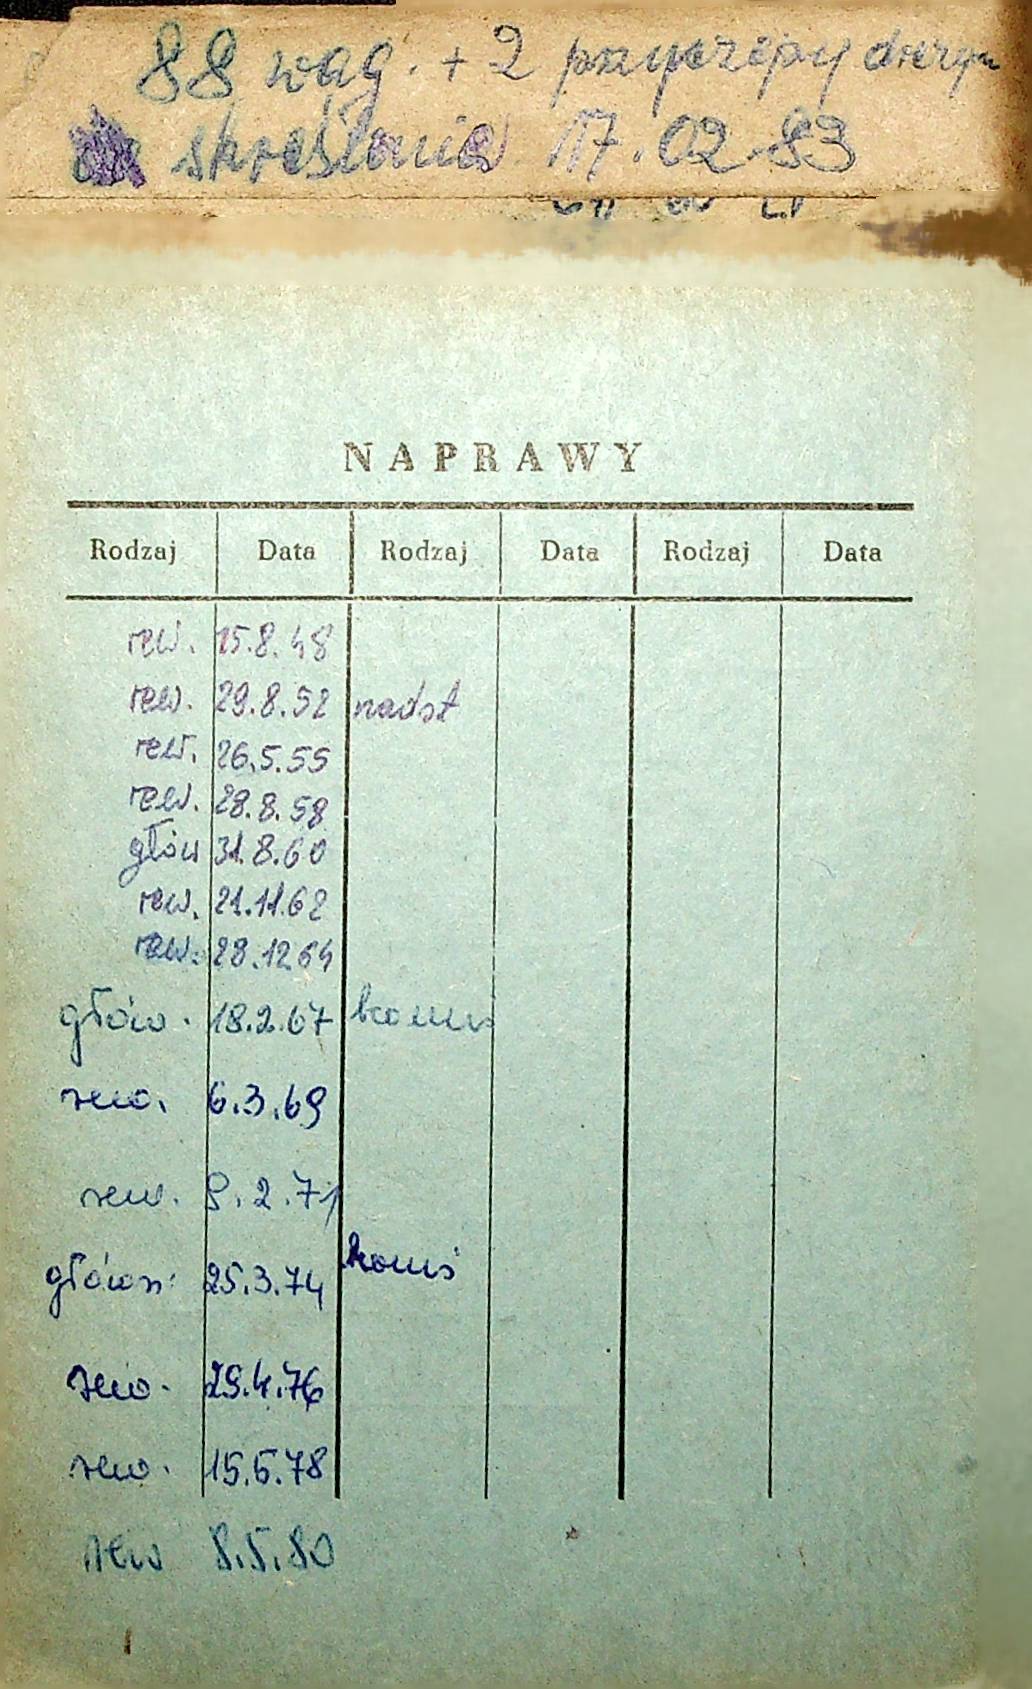 88 wag. + 2 przyczepy
skreślenia 17.02.83
NAPRAWY
Rodzaj Data Rodzaj Data Rodzaj Data
rew. 15.8.48
rew. 29.8.52 nadst
rew. 26.5.55
rew. 28.8.58
głów 31.8.60
rew. 21.11.62
rew. 28.12.64
głów. 18.2.67 komis
rew. 6.3.69
rew. 9.2.71
główn. 25.3.74 komis
rew. 29.4.76
rew. 15.5.78
rew 8.5.80